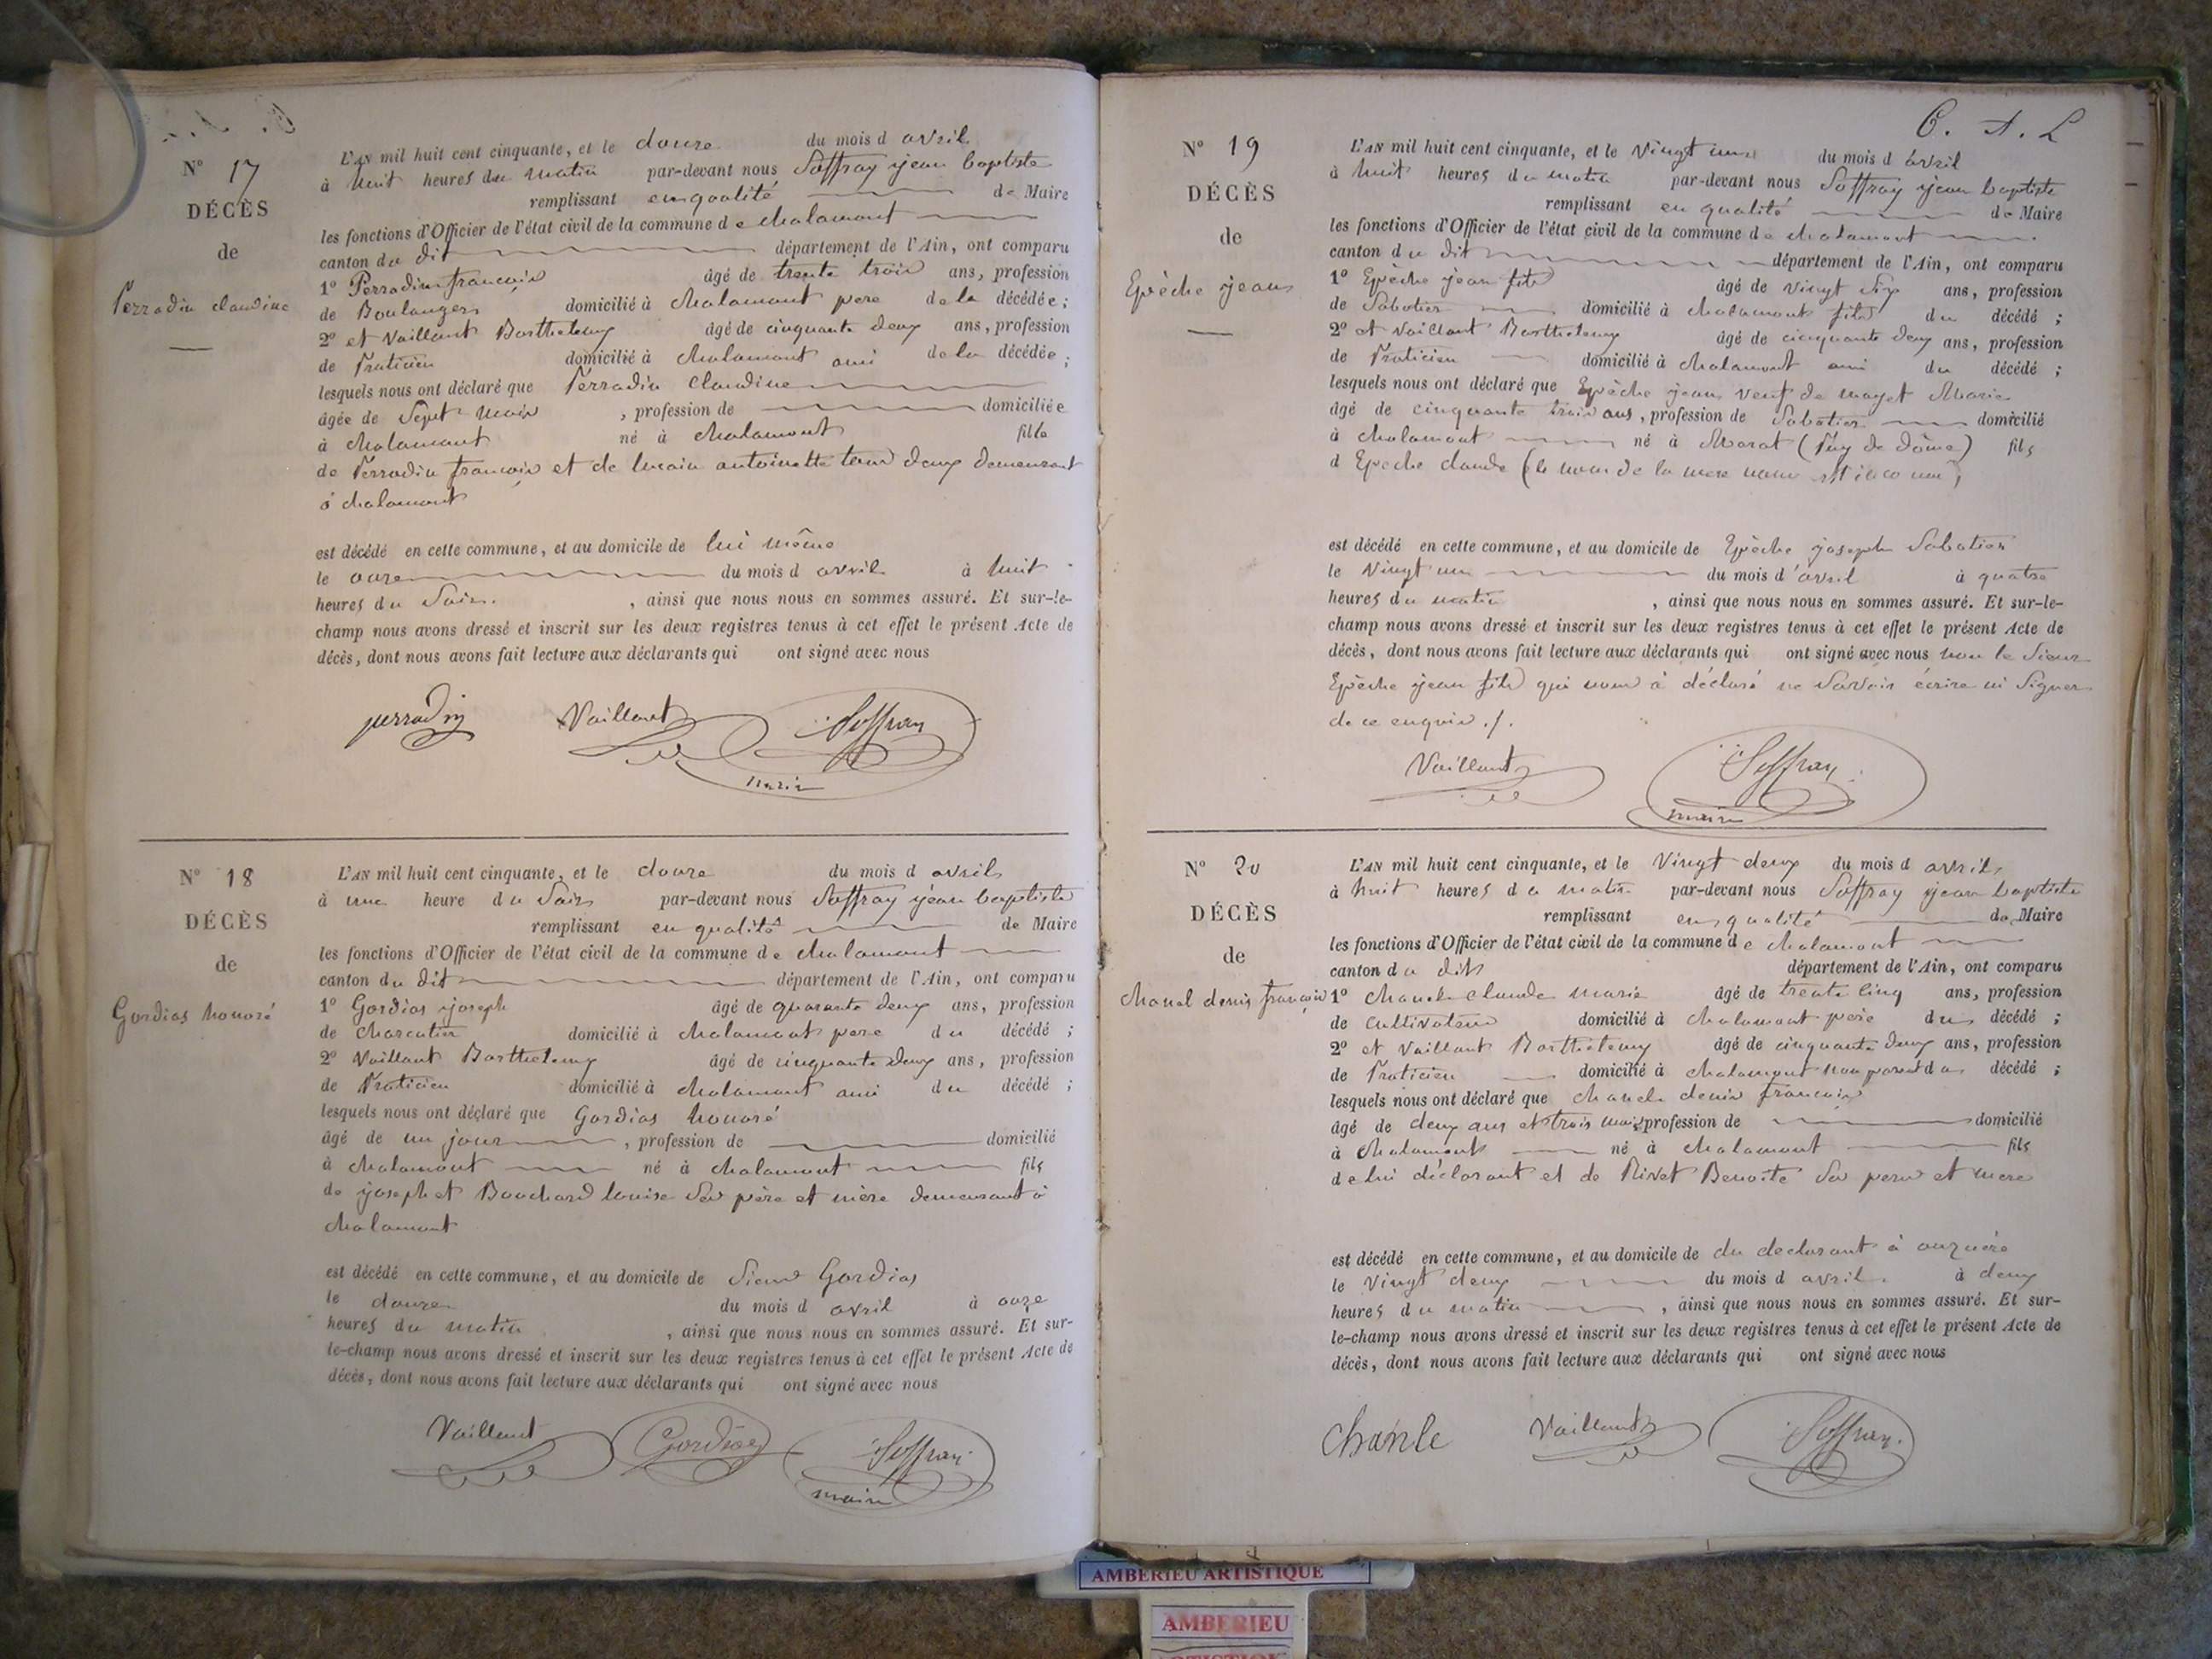 N° 17
DÉCÈS
de
Perradin claudine
L'AN mil huit cent cinquante, et le douze du mois d avril
à huit heures du matin par-devant nous Soffray jean baptiste
remplissant en qualité de Maire
les fonctions d'Officier de l'état civil de la commune de chalamont
canton du dit département de l'Ain, ont comparu
1° Perradin francois âgé de trente trois ans, profession
de Boulanger domicilié à chalamont pere de la décédée ;
2° et Vaillant Barthelemy âgé de cinquante deux ans, profession
de Praticien domicilié à chalamont ami de la décédée ;
lesquels nous ont déclaré que Perradin claudine
âgée de Sept mois , profession de domiciliée
à chalamont né à chalamont fille
de Perradin francois et de antoinette tous deux demeurant
à chalamont
est décédé en cette commune, et au domicile de lui même
le onze du mois d avril à huit
heures du Soir. , ainsi que nous nous en sommes assuré. Et sur-le-
champ nous avons dressé et inscrit sur les deux registres tenus à cet effet le présent Acte de
décès, dont nous avons fait lecture aux déclarants qui ont signé avec nous
perradin Vaillant Soffray
maire
N° 18
DÉCÈS
de
Gordias honoré
L'AN mil huit cent cinquante, et le douze du mois d avril
à une heure du Soir par-devant nous Soffray jean baptiste
remplissant en qualité de Maire
les fonctions d'Officier de l'état civil de la commune de chalamont
canton du dit département de l'Ain, ont comparu
1° Gordias joseph âgé de quarante deux ans, profession
de charcutier domicilié à chalamont pere du décédé ;
2° Vaillant Barthelemy âgé de cinquante deux ans, profession
de Praticien domicilié à chalamont ami du décédé ;
lesquels nous ont déclaré que Gordias honoré
âgé de un jour , profession de domicilié
à chalamont né à chalamont fils
de joseph et Bouchard louise Ses père et mère demeurant à
chalamont
est décédé en cette commune, et au domicile de Sieur Gordias
le douze du mois d avril à onze
heures du matin , ainsi que nous nous en sommes assuré. Et sur-
le-champ nous avons dressé et inscrit sur les deux registres tenus à cet effet le présent Acte de
décès, dont nous avons fait lecture aux déclarants qui ont signé avec nous
Vaillant Gordias Soffray
maire
C. A. L
N° 19
DÉCÈS
de
Epèche jean
L'AN mil huit cent cinquante, et le Vingt un du mois d avril
à huit heures du matin par-devant nous Soffray jean baptiste
remplissant en qualité de Maire
les fonctions d'Officier de l'état civil de la commune de chalamont
canton du dit département de l'Ain, ont comparu
1° Epèche jean fils âgé de vingt Six ans, profession
de Sabotier domicilié à chalamont fils du décédé ;
2° et Vaillant Barthelemy âgé de cinquante deux ans, profession
de Praticien domicilié à chalamont ami du décédé ;
lesquels nous ont déclaré que Epèche jean veuf de mayet Marie
âgé de cinquante trois ans, profession de Sabotier domicilié
à chalamont né à Marat (Puy de Dôme) fils
d Epeche claude (le nom de la mere nous est inconnu)
est décédé en cette commune, et au domicile de Epèche joseph Sabotier
le Vingt un du mois d'avril à quatre
heures du matin , ainsi que nous nous en sommes assuré. Et sur-le-
champ nous avons dressé et inscrit sur les deux registres tenus à cet effet le présent Acte de
décès, dont nous avons fait lecture aux déclarants qui ont signé avec nous non le Sieur
Epèche jean fils qui nous a déclaré ne Savoir écrire ni Signer
de ce enquis ./.
Vaillant Soffray
maire
N° 20
DÉCÈS
de
chanel denis francois
L'AN mil huit cent cinquante, et le Vingt deux du mois d avril
à huit heures du matin par-devant nous Soffray jean baptiste
remplissant en qualité de Maire
les fonctions d'Officier de l'état civil de la commune de chalamont
canton du dit département de l'Ain, ont comparu
1° claude marie âgé de trente cinq ans, profession
de cultivateur domicilié à chalamont père du décédé ;
2° et Vaillant Barthelemy âgé de cinquante deux ans, profession
de Praticien domicilié à chalamont non parent du décédé ;
lesquels nous ont déclaré que denis francois
âgé de deux ans et trois mois profession de domicilié
à chalamont né à chalamont fils
de lui déclarant et de Rivet Benoite Ses pere et mere
est décédé en cette commune, et au domicile de du declarant à
le Vingt deux du mois d avril à deux
heures du matin , ainsi que nous nous en sommes assuré. Et sur-
le-champ nous avons dressé et inscrit sur les deux registres tenus à cet effet le présent Acte de
décès, dont nous avons fait lecture aux déclarants qui ont signé avec nous
chanle Vaillant Soffray
AMBERIEU ARTISTIQUE
AMBERIEU
ARTISTIQUE